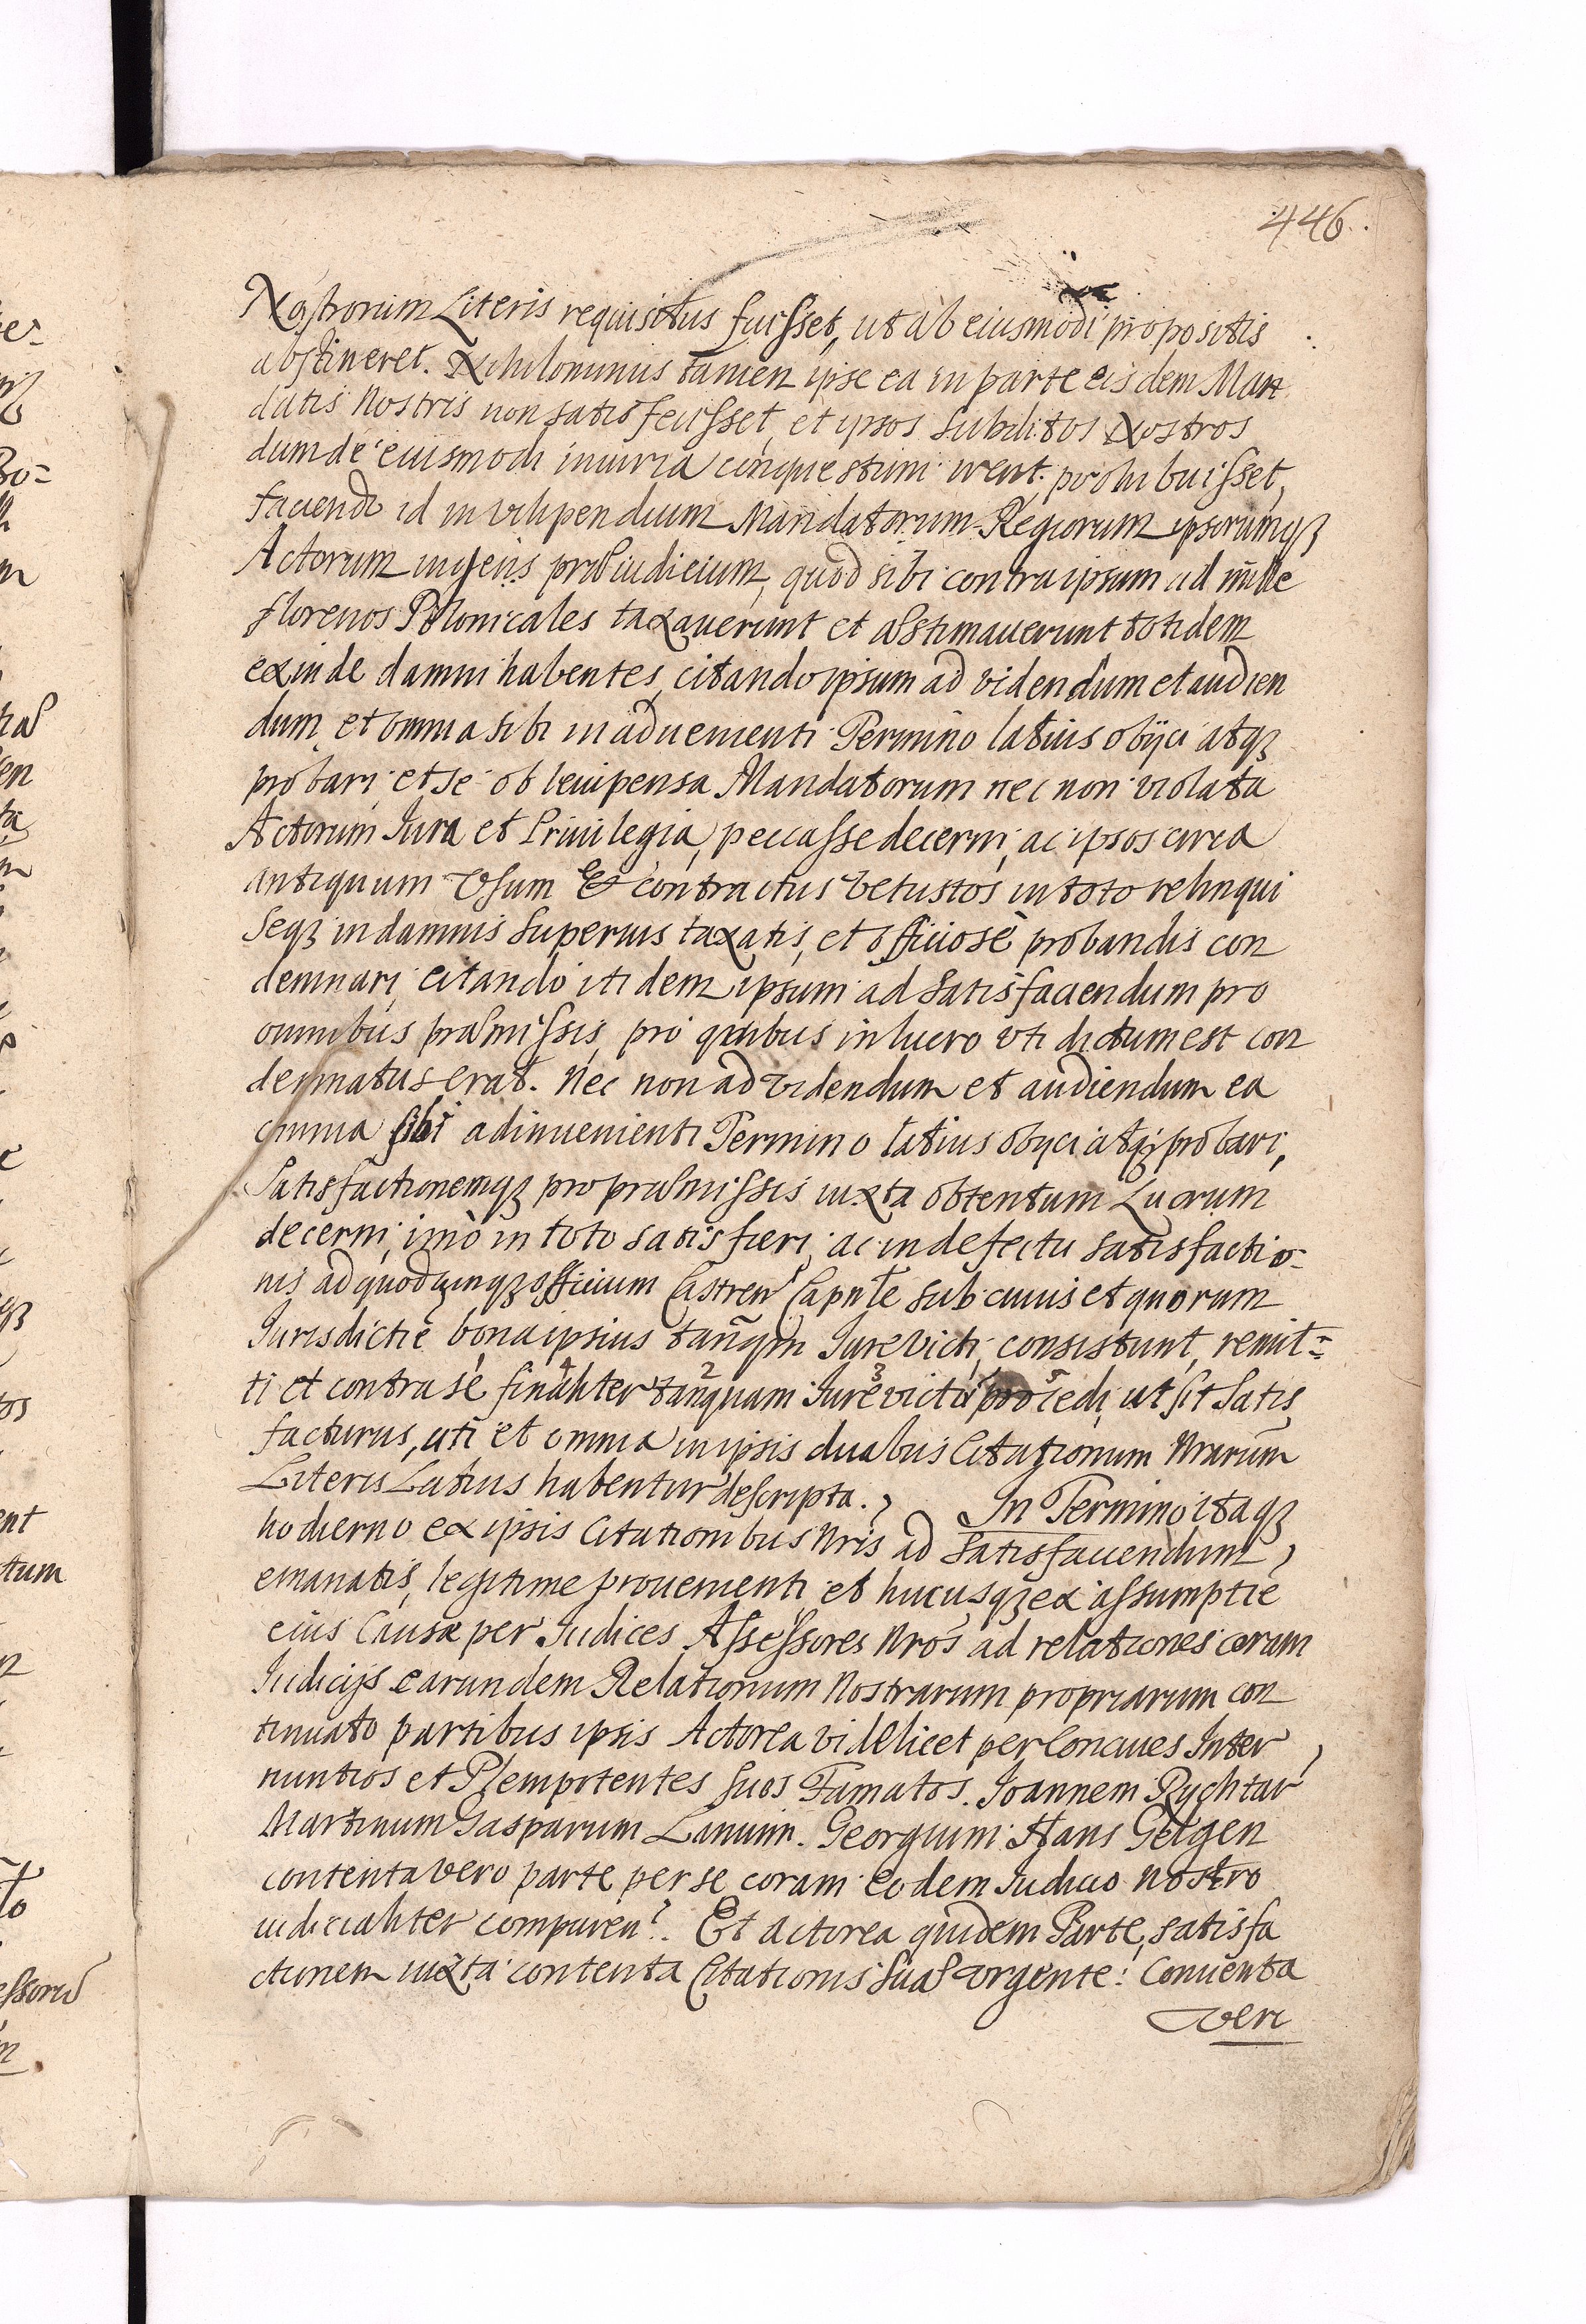 446.
Nostrorum Literis requisitus fuisset, ut ab eiusmodi propositis
abstineret. Nihilominus tamen ipse ea in parte eisdem Man
datis Nostris non satisfecisset, et ipsos Subditos Nostros
dum de eiusmodi iniuria conquestum irent prohibuisset,
faciendo id in vilipendium Mandatorum Regiorum ipsorumqȝ
Actorum ingens præiudicium, quod sibi contra ipsum ad mille
florenos Polonicales taxauerunt et æstimauerunt totidem
exinde damni habentes, citando ipsum ad videndum et audien
dum, et omnia sibi in aduenienti Termino latius obijci atqȝ
probari, et se ob leuipensa Mandatorum nec non violata
Actorum Iura et Priuilegia, peccasse decerni, ac ipsos circa
antiquum Vsum Et contractus Vetustos in toto relinqui
Seqȝ in damnis superius taxatis, et officiosè probandis con
demnari, citando itidem ipsum ad satisfaciendum pro
omnibus præmissis, pro quibus in lucro vti dictum est con
demnatus erat. Nec non ad videndum et audiendum ea
omnia sibi adinuenienti Termino latius obijci atqȝ probari,
Satisfactionemqȝ pro præmissis iuxta obtentum Lucrum
decerni, imò in toto satisfieri, ac in defectu satisfactio-
nis ad quodcunqȝ officium Castren Capnle sub cuius et quorum
Iurisdictie bona ipsius tanqm Iure victi, consistunt, remit=
ti et contra se finaliter tanquam Iure victū procedi, ut sit Satis
facturus, uti et omnia in ipsis duabus Citationum Nrarum
Literis Latius habentur descripta. In Termino itaqȝ
hodierno ex ipsis Citationibus Nris ad Satisfaciendum,
emanatis, legitime prouenienti, et hucusqȝ ex assumptie
eius Causæ per Iudices Assessores Nros ad relationes coram
Iudicijs earundem Relationum Nostrarum propriarum con
tinuato partibus ipsis Actorea videlicet per Conciues Inter
nuntios et Plenipotentes suos Famatos. Joannem Rychtar
Martinum Gasparum Lanium. Georgium Hans Gelgen
contenta vero parte per se coram eodem Iudicio Nostro
iudicialiter comparen. Et actorea quidem Parte, satisfa
ctionem iuxta contenta Citationis suæ vrgente: Conuenta
vero